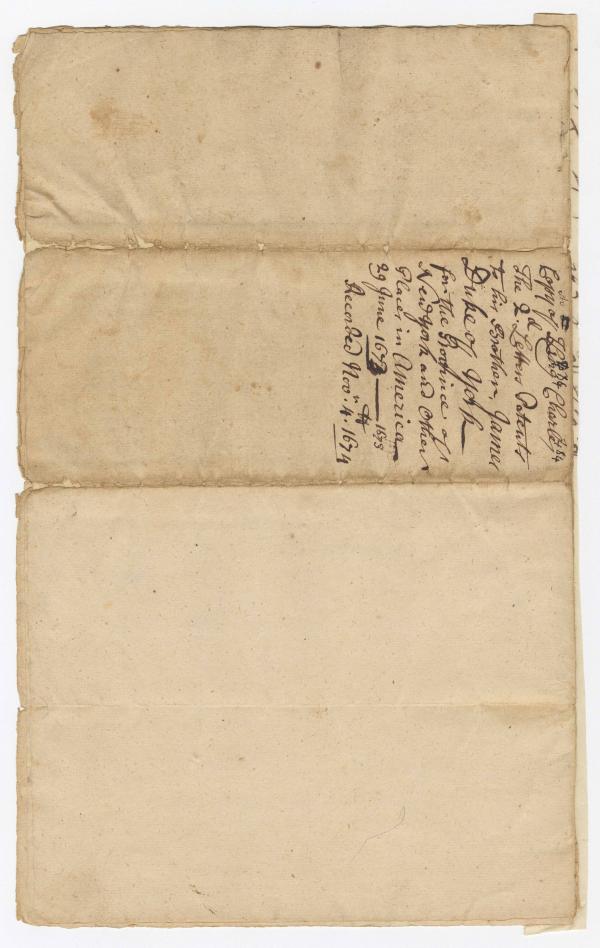 Copy of King Charles
The 2d Letters Patents
to his Brother James
Duke of York
for the Province of
New York and Other
Places in America
29 June 1674 — 1673
Recorded Novr. 4. 1674